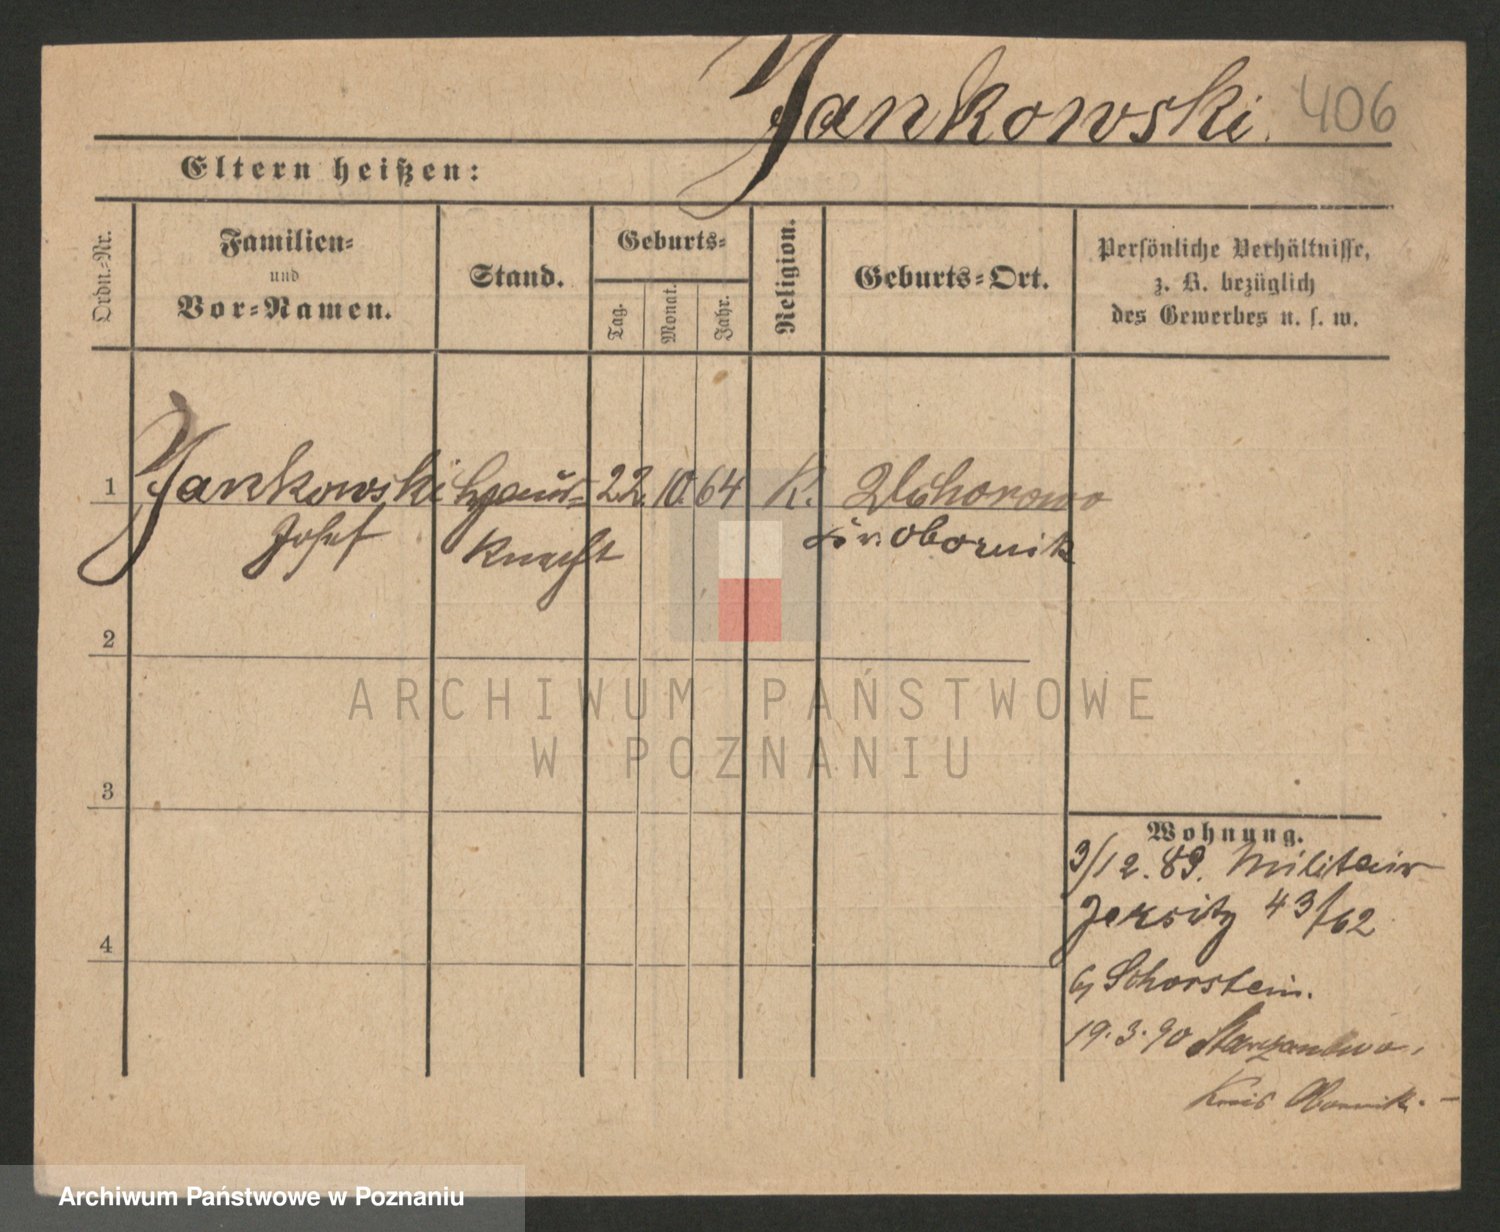 Jankowski. 406
Eltern heißen:
Ordn.-Nr.
Familien-
und
Vor-Namen.
Stand.
Geburts-
Tag.
Monat.
Jahr.
Religion.
Geburts-Ort.
Persönliche Verhältnisse,
z. B. bezüglich
des Gewerbes u. s. w.
1 Jankowski Haus- 22. 10. 64 K.
Josef Knecht Kr. Obornik
2
3
4
Wohnung.
3/12.89. Militair
Jersitz 43/62
by Schorstein.
19.3.90
Kreis Obornik.
ARCHIWUM PAŃSTWOWE
W POZNANIU
Archiwum Państwowe w Poznaniu